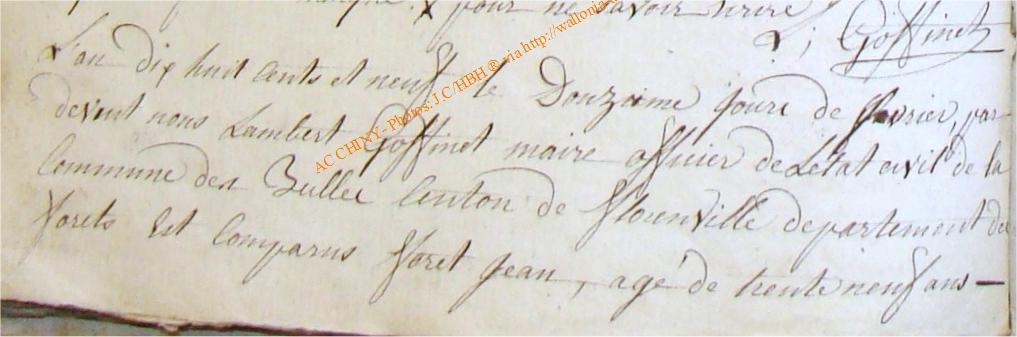 pour ne savoir écrire
L; Goffinet
L'an dix huit cents et neuf le Douzeime jour de fevrier, par
devent nous Lambert Goffinet maire officier de L'etat civil de la
Commune des Bulles Centon de Florenville departement des
forets Est Comparus foret jean, agé de trente neuf ans —
AC CHINY - Photos: J.C/HBH ® via http://wallonia